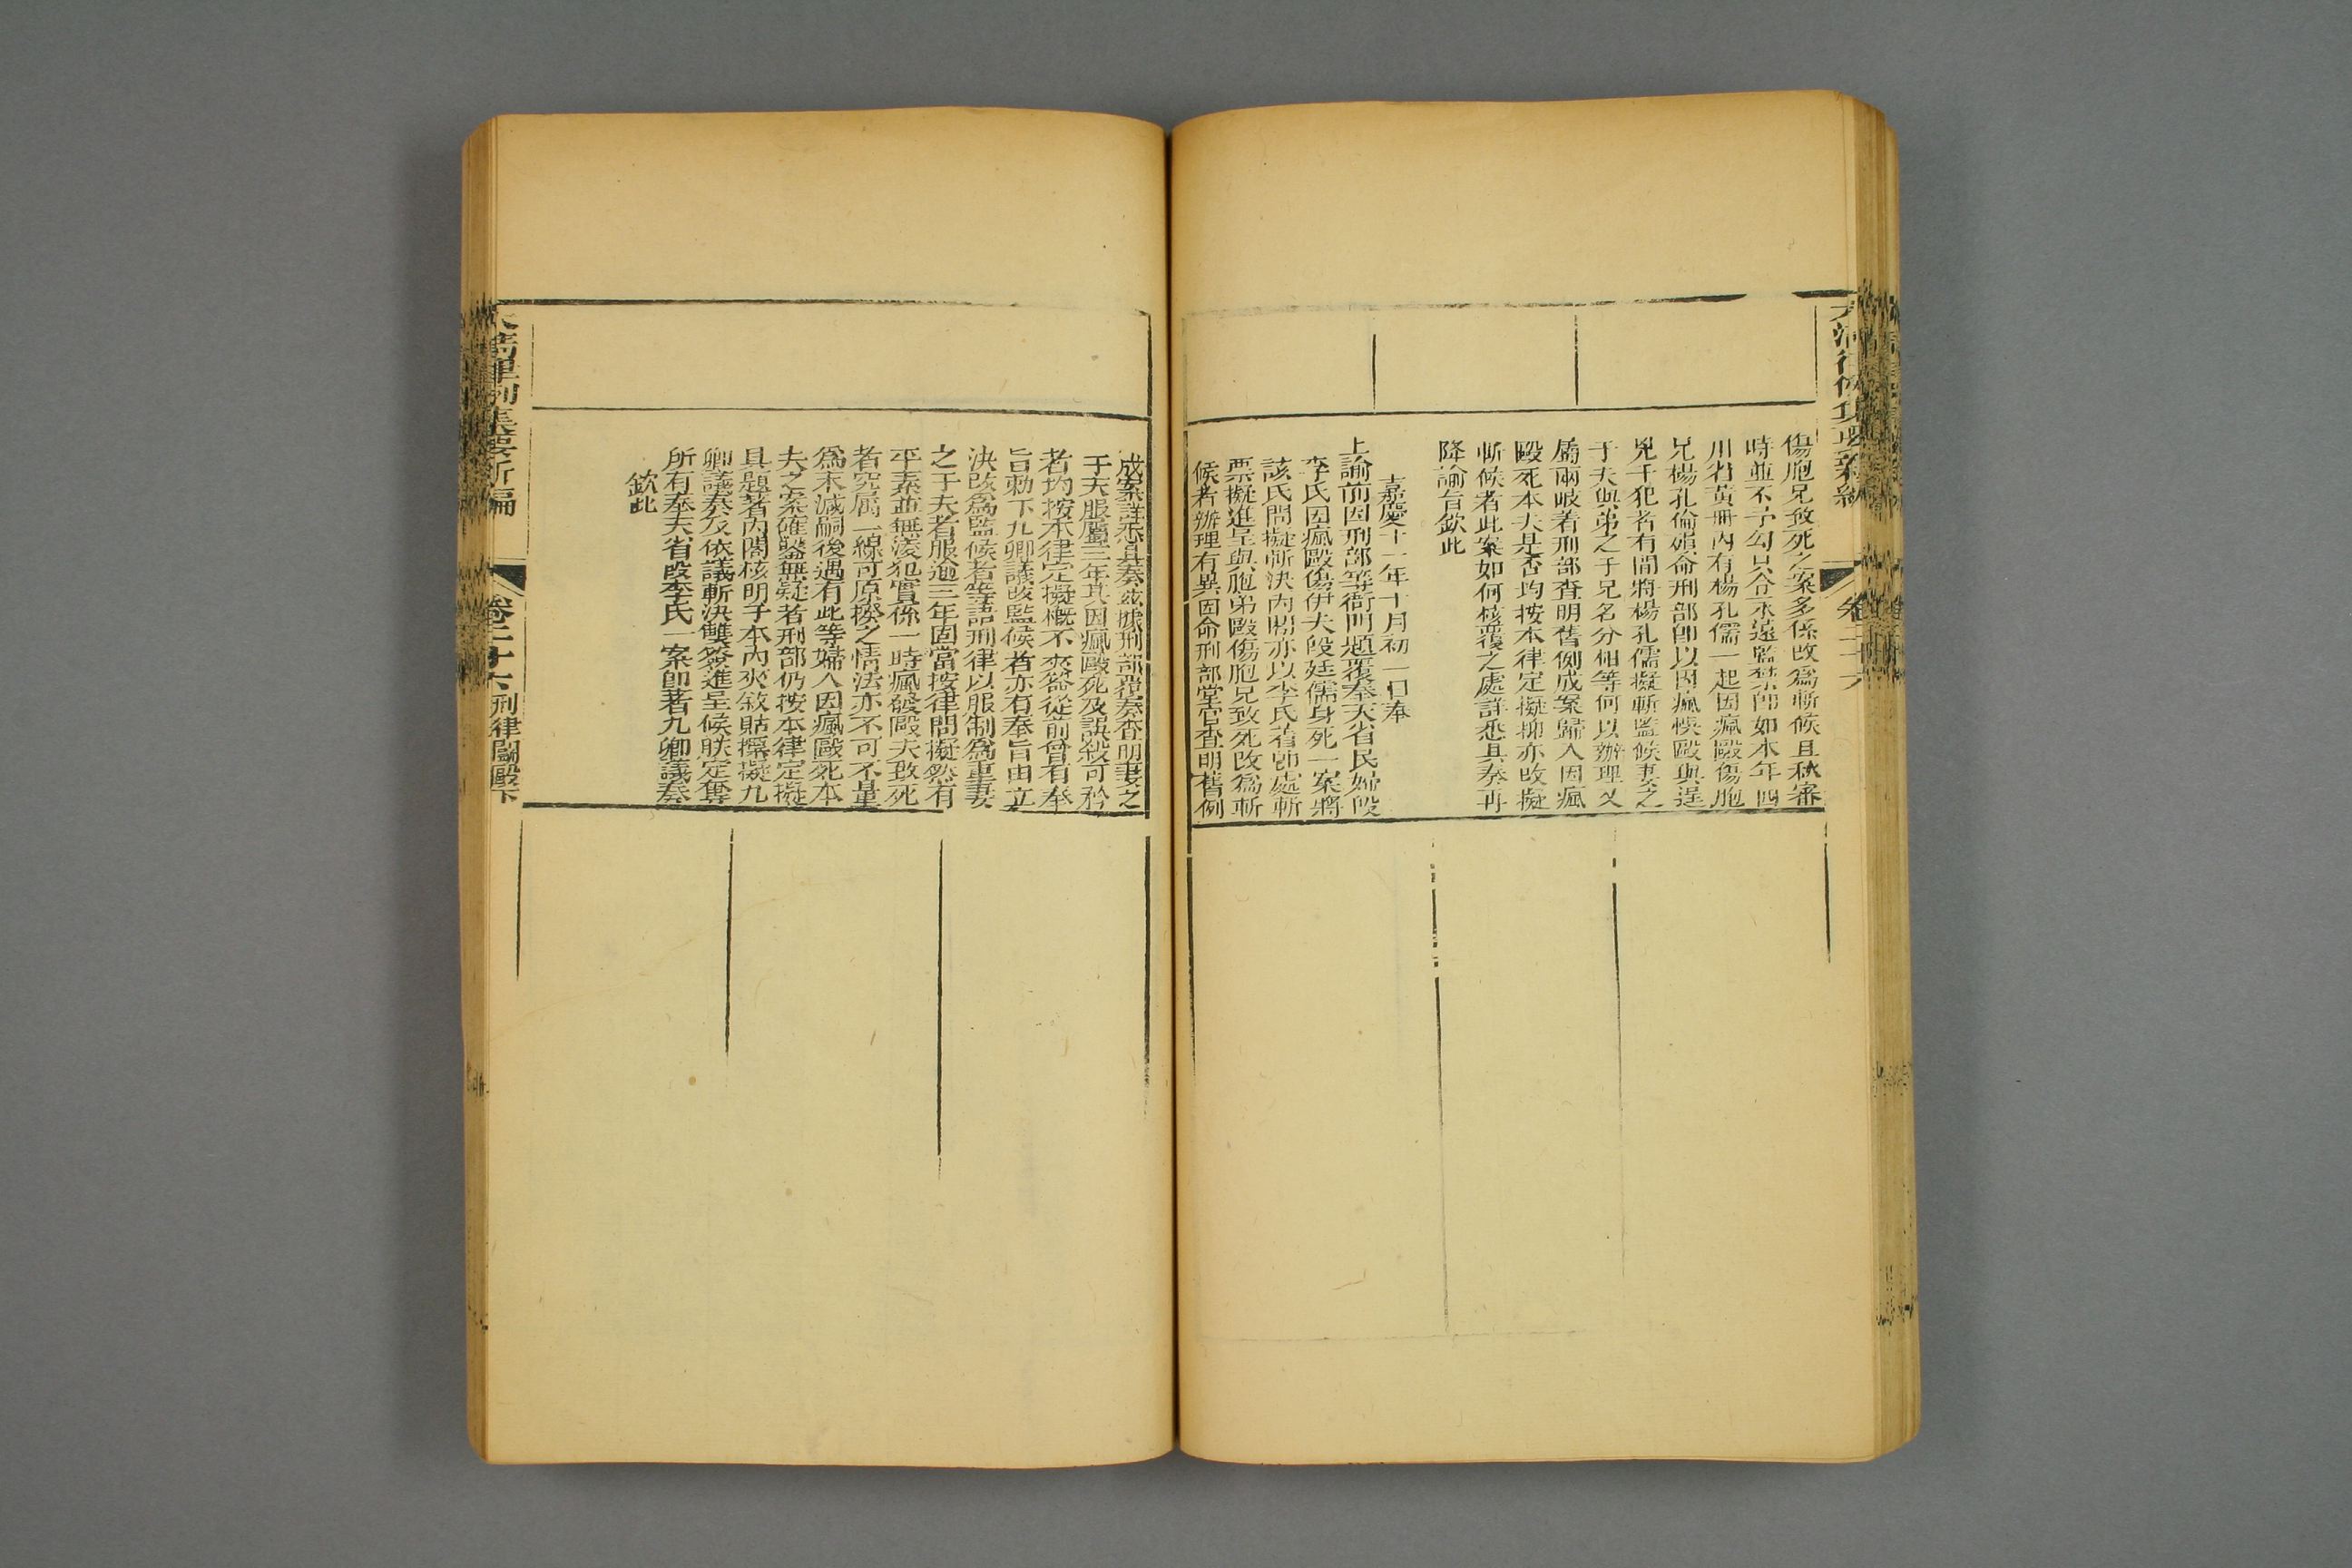 大清律例集要新編
卷二十六
傷胞兄致死之案多係改為斬候且秋審
時並不予勾只令永遠監禁卽如本年四
川省黃冊內有楊孔儒一起因瘋毆傷胞
兄楊孔倫殞命刑部卽以因瘋悞毆與逞
兇干犯者有間將楊孔儒擬斬監候妻之
于夫與弟之于兄名分相等何以辦理又
屬兩歧着刑部查明舊例成案歸入因瘋
毆死本夫是否均按本律定擬抑亦改擬
斬候者此案如何核覆之處詳悉具奏再
降諭旨欽此
嘉慶十一年十月初一日奉
上諭前因刑部等衙門題覆奉天省民婦段
李氏因瘋毆傷伊夫段廷儒身死一案將
該氏問擬斬決內閣亦以李氏着卽處斬
票擬進呈與胞弟毆傷胞兄致死改為斬
候者辦理有異因命刑部堂官查明舊例
成案詳悉具奏茲據刑部覆奏查明妻之
于夫服屬三年其因瘋毆死及誤殺可矜
者均按本律定擬概不夾簽從前曾有奉
旨勅下九卿議改監候者亦有奉旨由立
決改為監候者等語刑律以服制為重妻
之于夫者服逾三年固當按律問擬然有
平素並無淩犯實係一時瘋發毆夫致死
者究屬一線可原揆之情法亦不可不量
為末減嗣後遇有此等婦人因瘋毆死本
夫之案確鑿無疑者刑部仍按本律定擬
具題著內閣核明于本內夾敘貼擬九
卿議奏及依議斬決雙簽進呈候朕定奪
所有奉天省段李氏一案卽著九卿議奏
欽此
大清律例集要新編
卷二十六 刑律鬬毆下